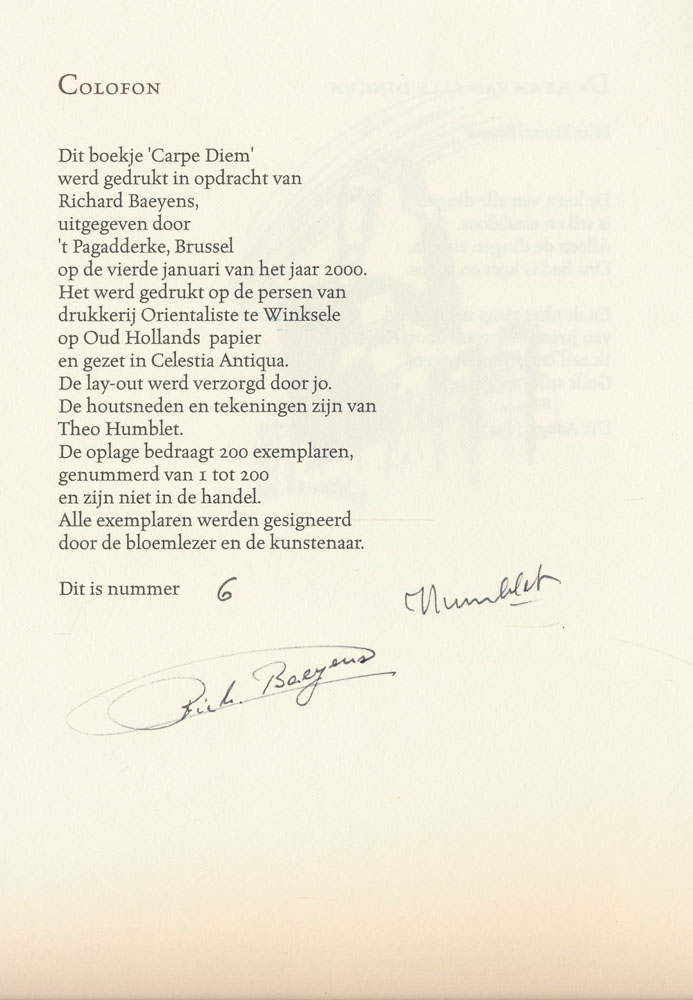 Colofon
Dit boekje 'Carpe Diem'
werd gedrukt in opdracht van
Richard Baeyens,
uitgegeven door
't Pagadderke, Brussel
op de vierde januari van het jaar 2000.
Het werd gedrukt op de persen van
drukkerij Orientaliste te Winksele
op Oud Hollands papier
en gezet in Celestia Antiqua.
De lay-out werd verzorgd door jo.
De houtsneden en tekeningen zijn van
Theo Humblet.
De oplage bedraagt 200 exemplaren,
genummerd van 1 tot 200
en zijn niet in de handel.
Alle exemplaren werden gesigneerd
door de bloemlezer en de kunstenaar.
Dit is nummer 6
Humblet
Rich. Baeyens